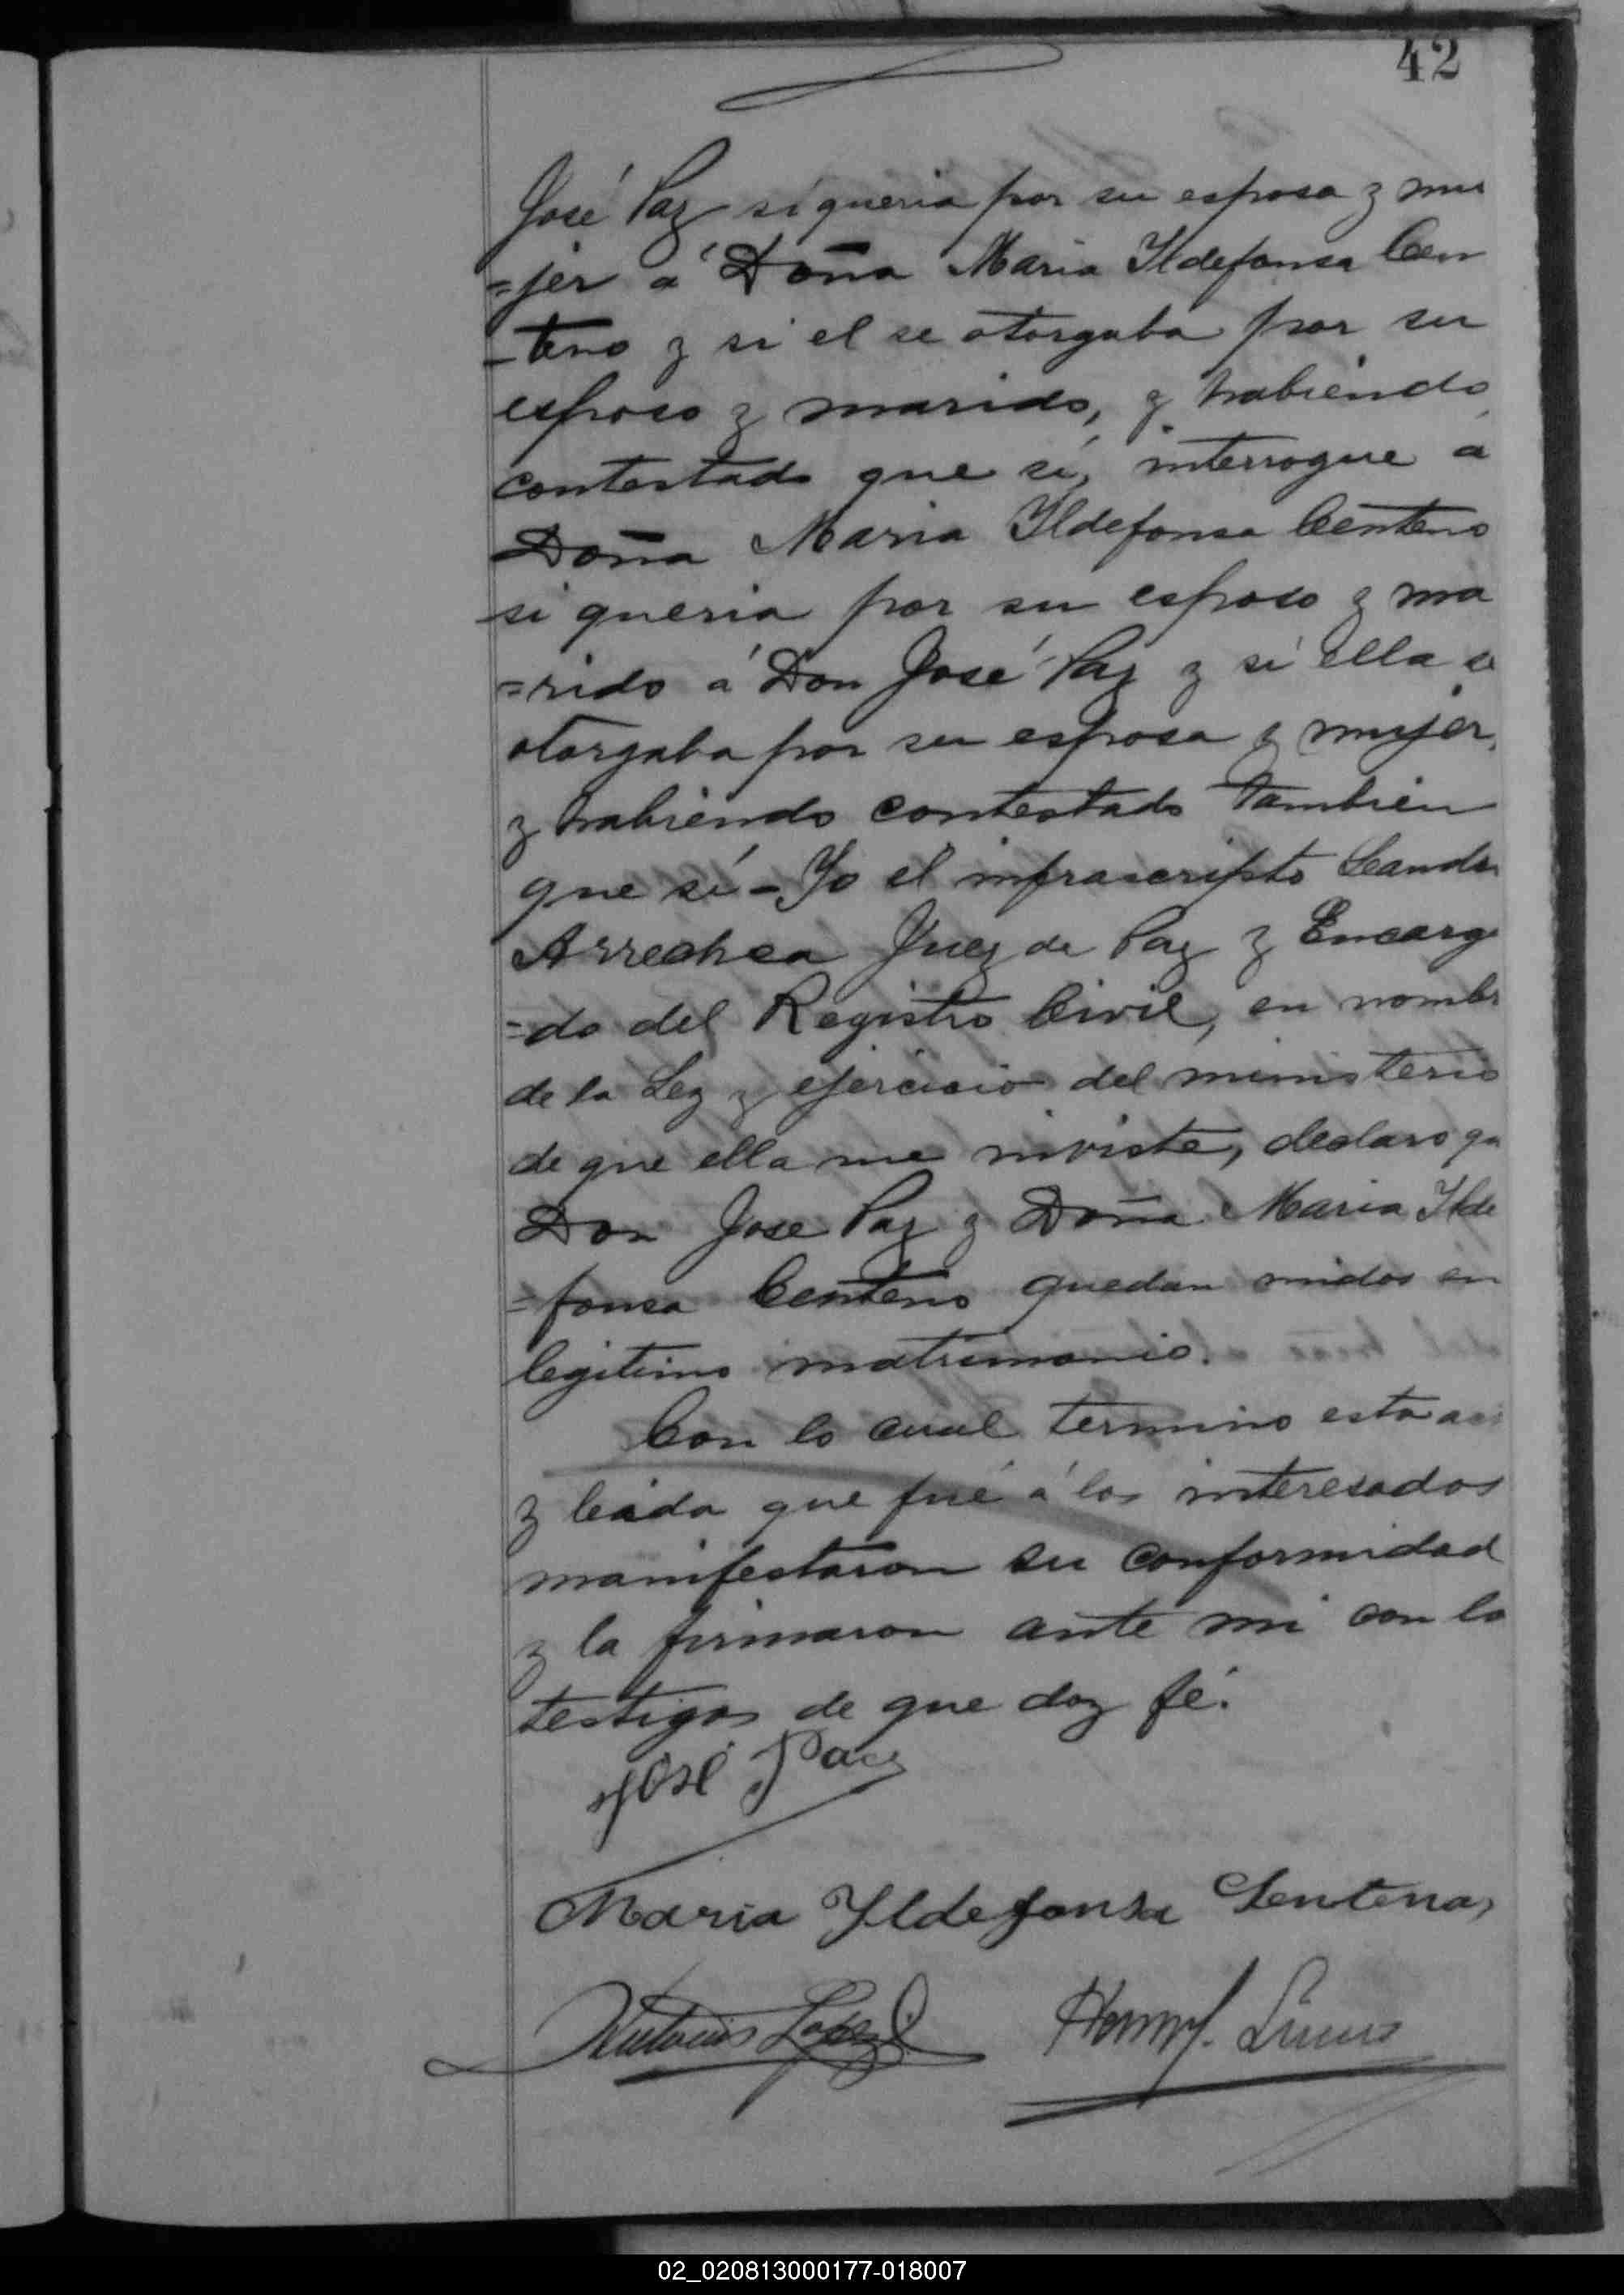 42
José Paz si queria por su esposa y mu
=jer á Doña Maria Ildefonsa Cen
-teno y si el se otorgaba por su
esposo y marido, y habiendo
contestado que sí, interrogue a
Doña Maria Ildefonsa Centeno
si queria por su esposo y ma
=rido á Don José Paz y si ella se
otorgaba por su esposa y mujer,
y habiendo contestado tambien
que sí - Yo el infrascripto Leandro
Arrechea Juez de Paz y Encarga
=do del Registro Civil, en nombre
de la Ley y ejercicio del ministerio
de que ella me inviste, declaro que
Don Jose Paz y Doña Maria Ilde
=fonsa Centeno quedan unidos en
legitimo matrimonio.
Con lo cual termino esta ac
y leida que fué á los interesados
manifestaron su conformidad
y la firmaron ante mi con lo
testigos de que doy fé.
José Paz
Maria Ildefonsa Sentena
Antonio Lopez
02_020813000177-018007